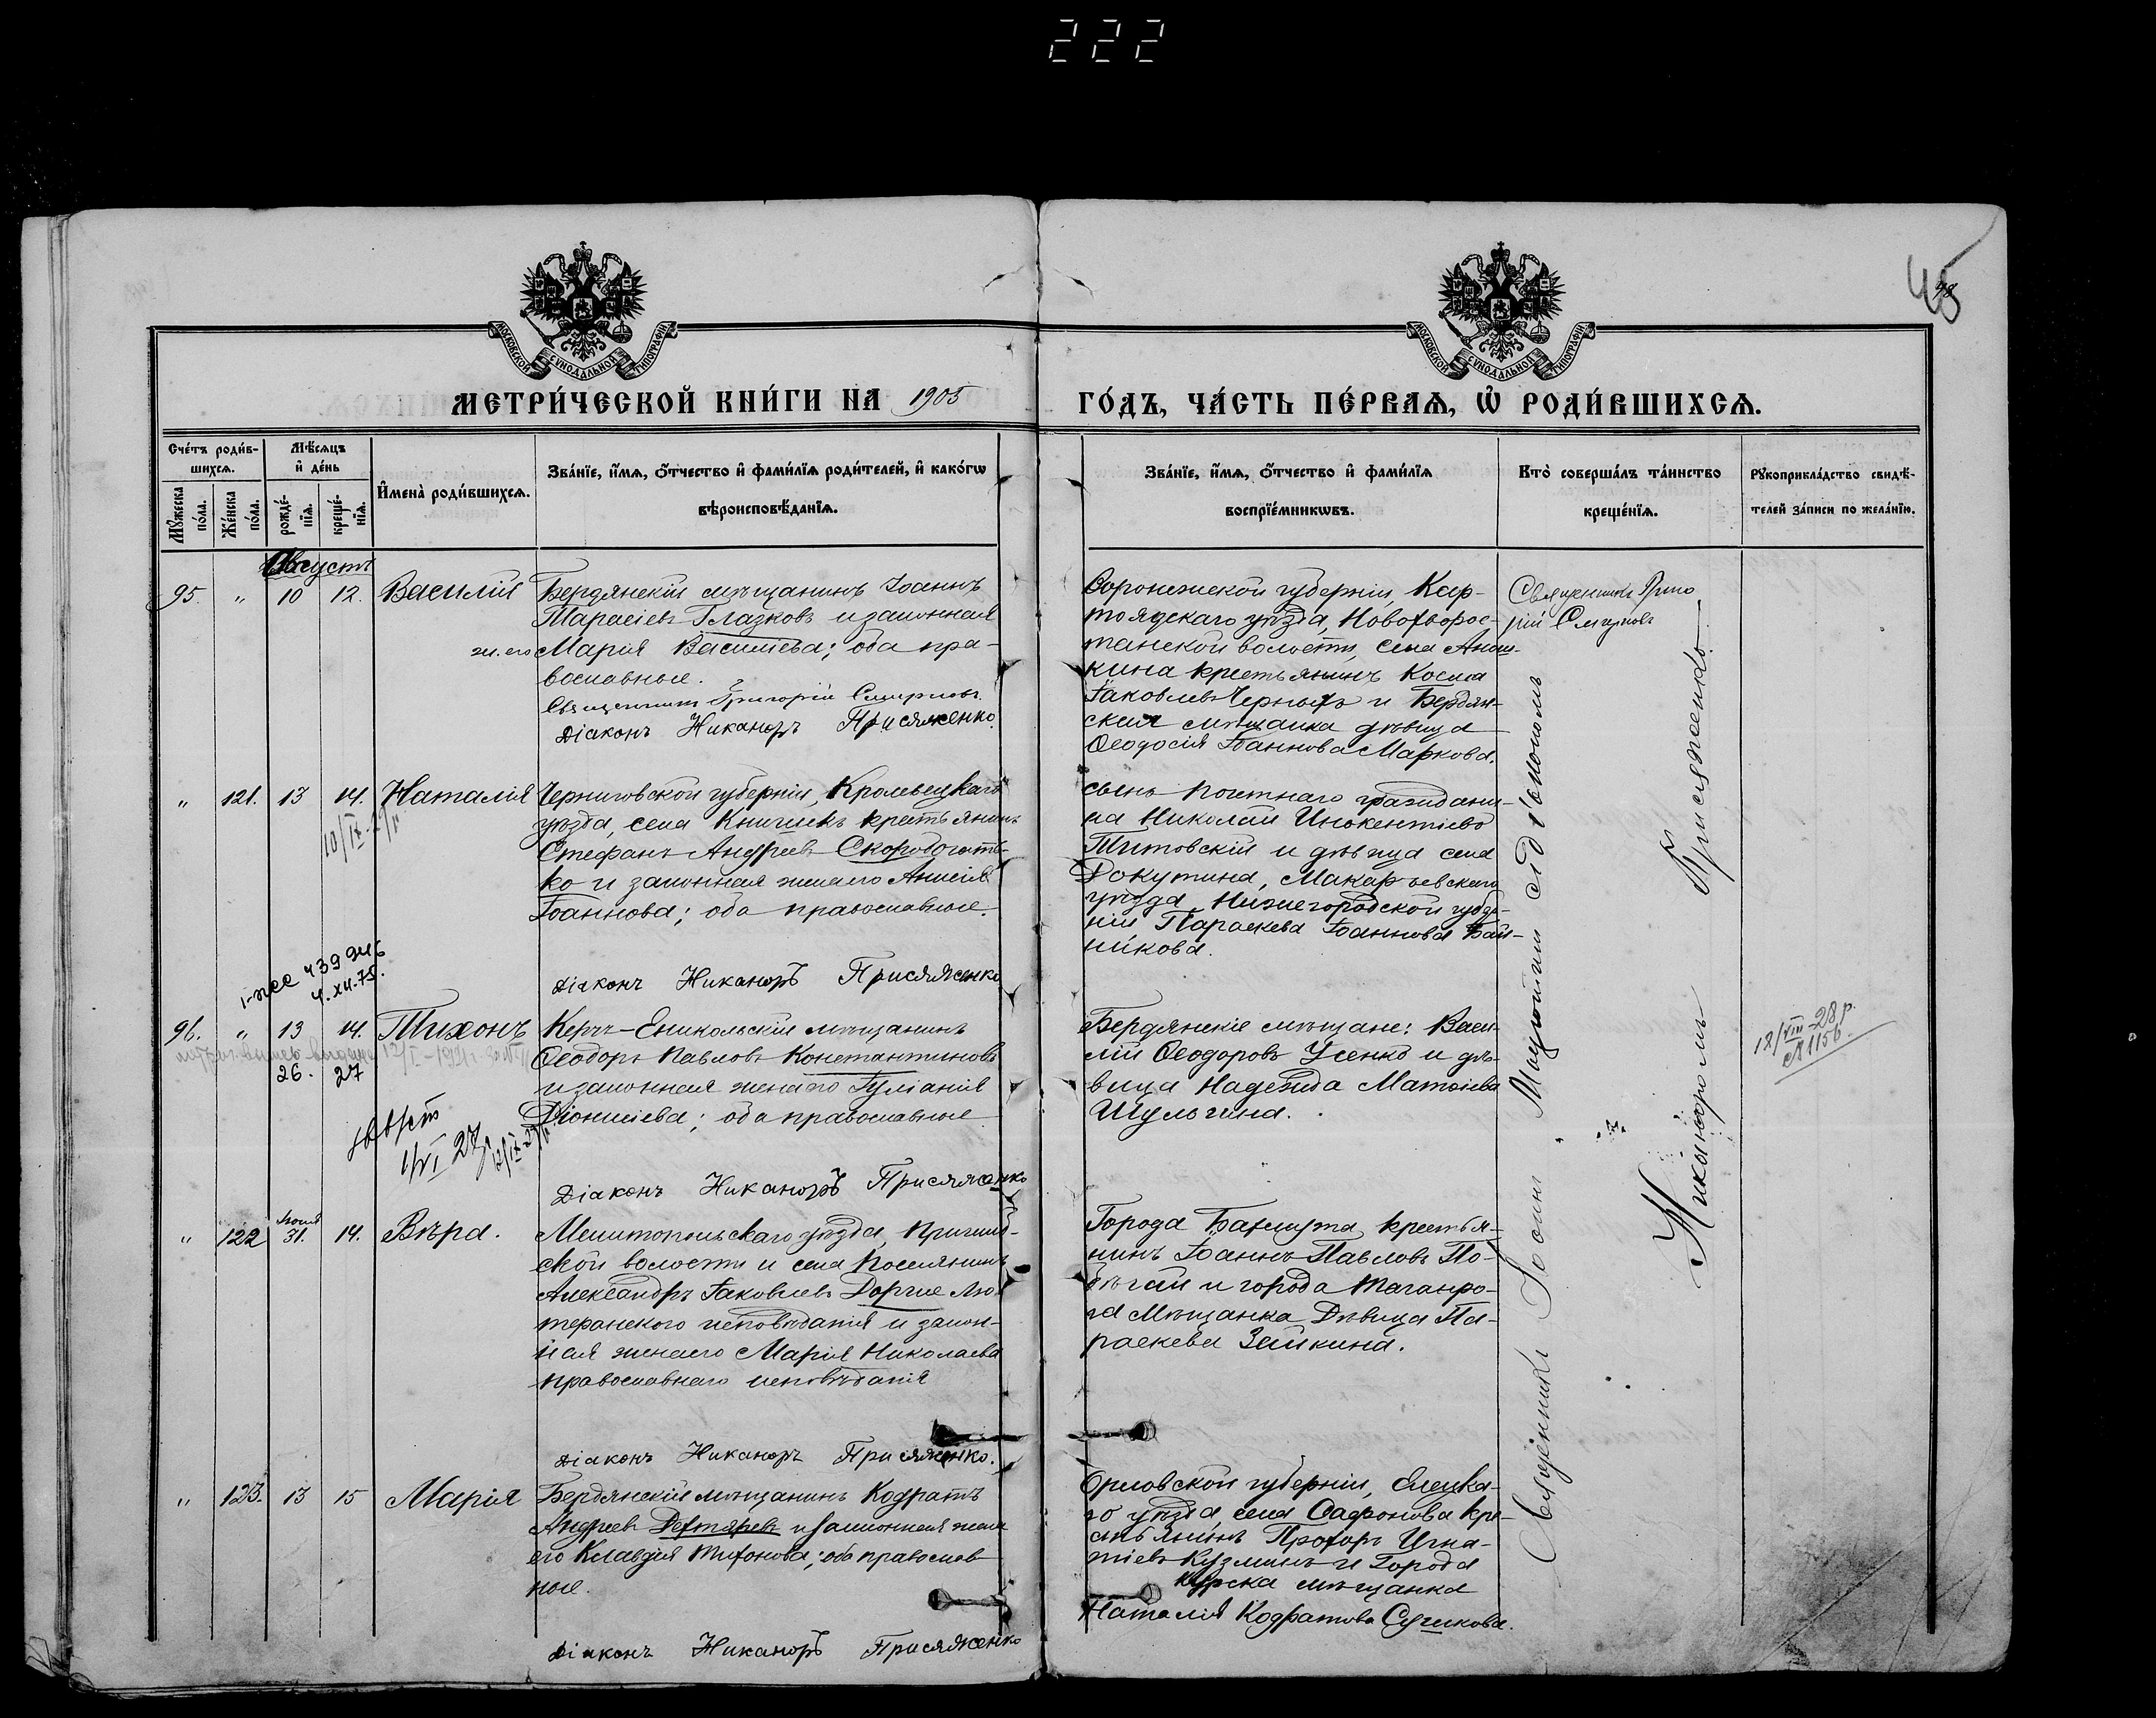 222
45
МОСКОВСКОЙ СѴНОДАЛЬНОЙ ТИПОГРАФІИ
МОСКОВСКОЙ СѴНОДАЛЬНОЙ ТИПОГРАФІИ
МЕТРИ́ЧЕСКОЙ КНИ́ГИ НА 1905 ГО́ДЪ, ЧА́СТЬ ПЕ́РВАѦ, Ѡ РОДИ́ВШИХСѦ.
Сче́тъ роди́в-
шихсѧ.
Мꙋ́жеска по́ла.
Же́нска по́ла.
Мѣ́сѧцъ
и҆ де́нь
рожде́-
нїѧ.
креще́-
нїѧ.
И҆мена̀ роди́вшихсѧ.
Зва́нїе, и҆́мѧ, ѻ҆́тчество и҆ фами́лїѧ роди́телей, и҆ како́гѡ
вѣроисповѣ́данїѧ.
Зва́нїе, и҆́мѧ, ѻ҆́тчество и҆ фами́лїѧ
воспрїе́мникѡвъ.
Кто̀ соверша́лъ та́инство
креще́нїѧ.
Рꙋкоприкла́дство свидѣ́-
телей за́писи по жела́нїю.
Августъ
95. „ 10 12. Василій
Бердянскій мѣщанинъ Іоаннъ
Тарасіевъ Глазковъ и законная
ж. его Марія Василіева; оба пра-
вославные.
Священникъ Григорій Смирновъ.
Діаконъ Никаноръ Присяженко.
Воронежской губерніи, Кор-
тоякскаго уѣзда,
танской волости, села
кина крестьянинъ Косма
Іаковлевъ Черныхъ и Бердян-
ская мѣщанка дѣвица
Ѳеодосія Іоаннова Маркова.
Священникъ Григо
рій Смирновъ
„ 121. 13 14. Наталія
10/IX-27
Черниговской губерніи, Кролевецкаго
уѣзда, села крестьянинъ
Стефанъ Андреевъ Скоробогать-
ко и законная жена его Анисія
Іоаннова; оба православные.
Діаконъ Никаноръ Присяженко
сынъ почетнаго граждани-
на Николай Инокентіевъ
Титовскій и дѣвица села
Докучина, Макарьевскаго
уѣзда, Нижегородской губер-
ніи Параскева Іоаннова Бай-
никова.
439946
4.XII.75.
96. „ 13 14. Тихонъ
26. 27
Керчь-Еникольскій мѣщанинъ
Ѳеодоръ Павловъ Константиновъ
и законная жена его Іуліанія
Діонисіева; оба православные
Діаконъ Никаноръ Присяженко
Бердянскіе мѣщане: Васи-
лій Ѳеодоровъ Усенко и дѣ-
вица Надежда Матвіева
Шульгина.
18/VIII-28 р.
№1156.
1/VI 27
„ 122 Іюля 31. 14. Вѣра.
Мелитопольскаго уѣзда, Пришиб-
ской волости и села поселянинъ
Александръ Іаковлевъ Лю-
теранского исповѣданія и закон-
ная жена его Марія Николаева
православнаго исповѣданія
Діаконъ Никаноръ Присяженко.
Города Бахмута крестья-
нинъ Іоаннъ Павловъ По-
и города Таганро-
га Мѣщанка Дѣвица Па-
раскева Зайкина.
„ 123. 13 15 Марія
Бердянскій мѣщанинъ Кодратъ
Андреевъ Дехтяревъ и законная жена
его Клавдія Тихонова; оба православ
ные.
Діаконъ Никаноръ Присяженко
Орловской губерніи, Елецка-
го уѣзда, села Сафонова кре-
стьянинъ Прохоръ Игна-
тіевъ Кузминъ и города
Курска мѣщанка
Наталія Кодратова Сучикова.
Священникъ Іоаннъ
Никаноромъ Присяженко